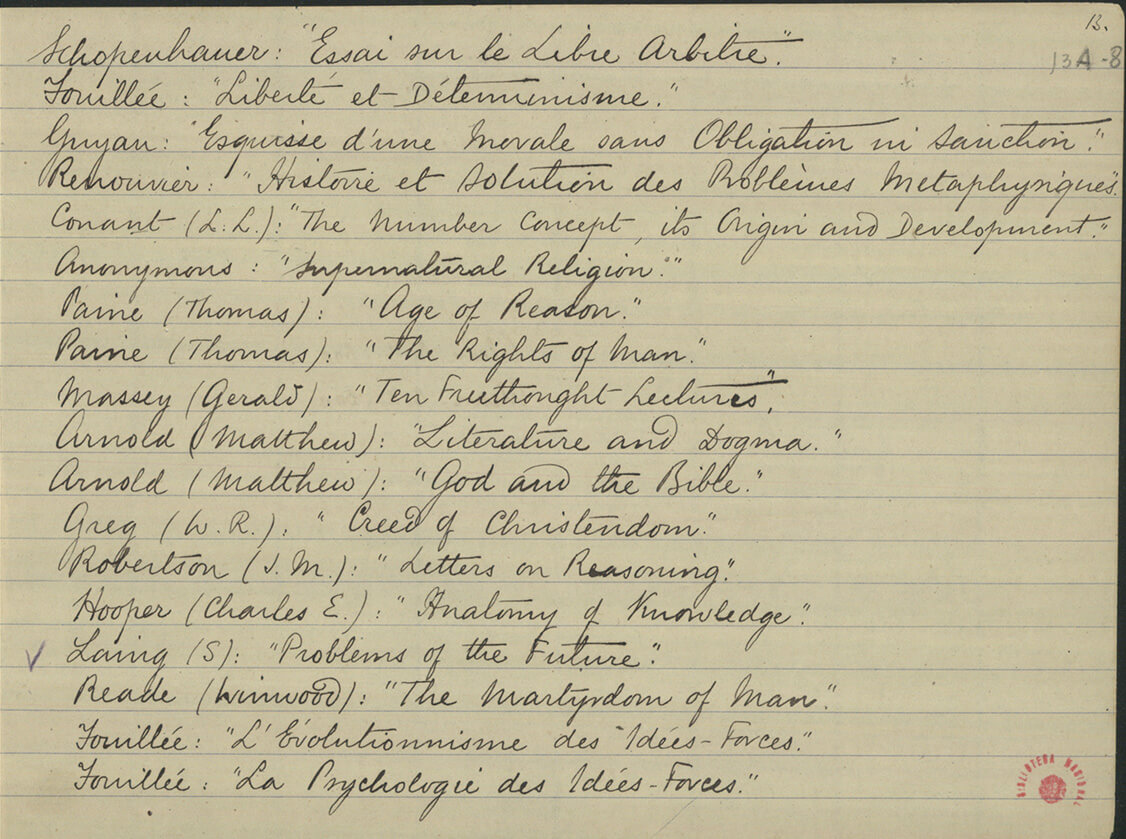 13.
13A-8
Schopenhauer: "Essai sur le Libre Arbitre".
Fouillée: "Liberté et Déterminisme."
Guyau: "Esquisse d'une Morale sans Obligation ni Sanction."
Renouvier: "Histoire et Solution des Problèmes Metaphysiques".
Conant (L. L.): "The Number Concept, its Origin and Development."
Anonymous: "Supernatural Religion."
Paine (Thomas): "Age of Reason."
Paine (Thomas): "The Rights of Man."
Massey (Gerald): "Ten Freethought Lectures".
Arnold (Matthew): "Literature and Dogma."
Arnold (Matthew): "God and the Bible."
Greg (W. R.): "Creed of Christendom."
Robertson (J. M.): "Letters on Reasoning".
Hooper (Charles E.): "Anatomy of Knowledge".
✓ Laing (S): "Problems of the Future".
Reade (Winwood): "The Martyrdom of Man".
Fouillée: "L'Évolutionnisme des Idées-Forces."
Fouillée: "La Psychologie des Idées-Forces."
BIBLIOTECA NACIONAL